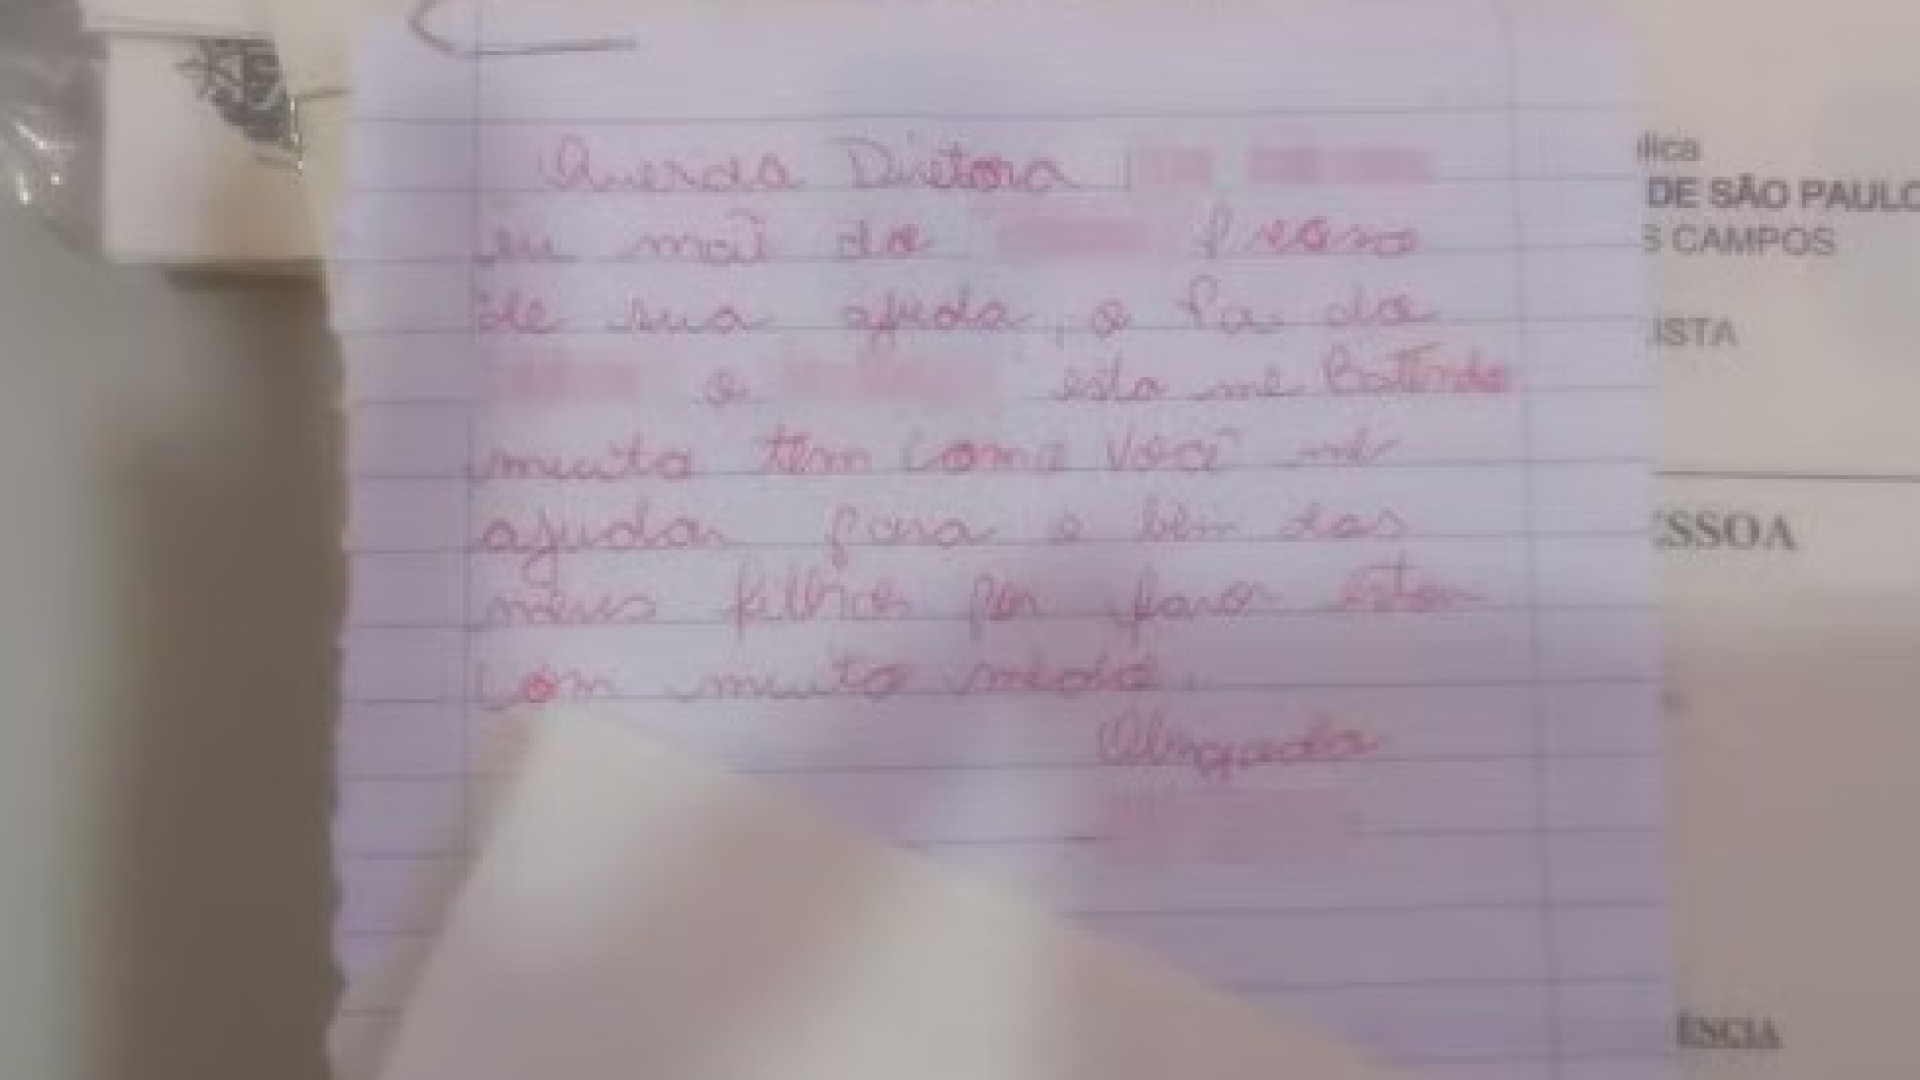 Querida Diretora
eu mãe da preciso
de sua ajuda, o pai da
e esta me Batendo
muito tem como você me
ajudar para o bem dos
meus filhos por favor estou
com muito medo.
Obrigada
lica
DE SÃO PAULO
S CAMPOS
ISTA
ESSOA
ÊNCIA